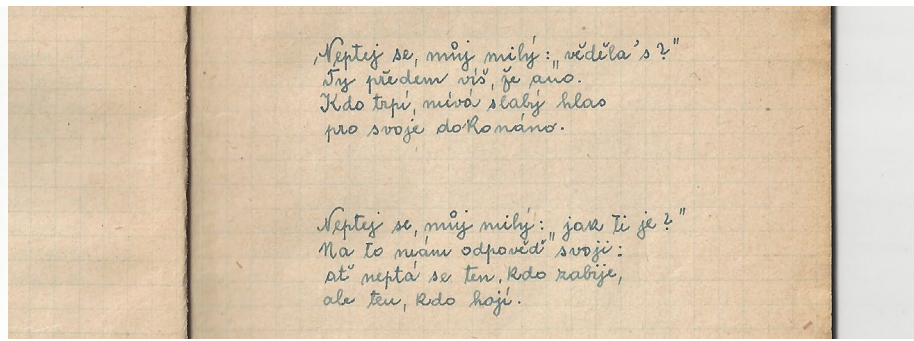 Neptej se, můj milý: „věděla's?"
Ty předem víš, že ano.
Kdo trpí, mívá slabý hlas
pro svoje dokonáno.
Neptej se, můj milý: „jak ti je?"
Na to mám odpověď svoji:
ať neptá se ten, kdo zabije,
ale ten, kdo hojí.